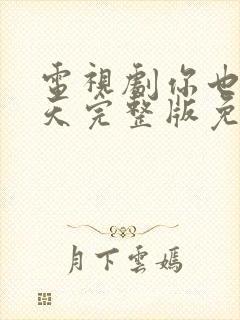 電視劇你也
天完整版免
月下雲嫣